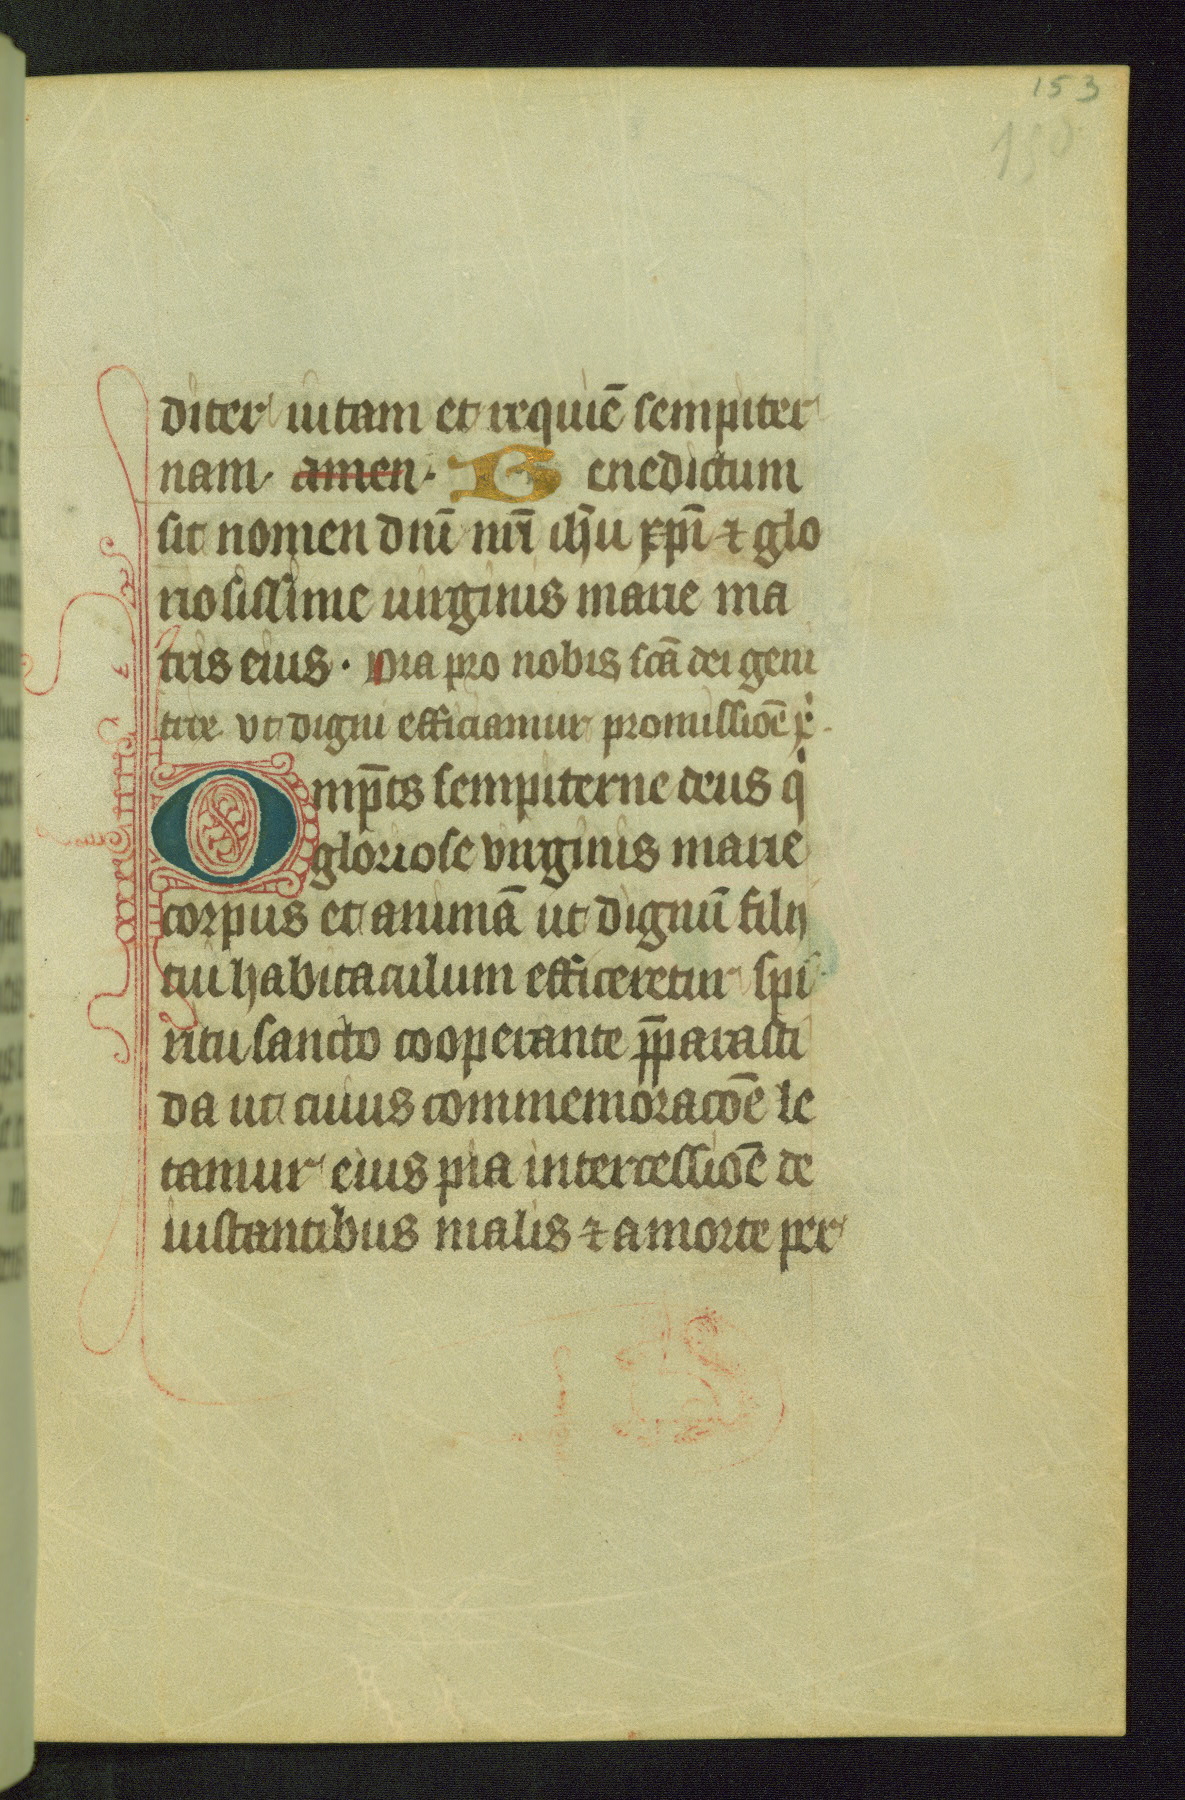 153
150
diter uitam et requiē sempiter
nam· amen· Benedictum
sit nomen dnī nr̄i ihū xp̄i ⁊ glo
riosissime uirginis marie ma
tris eius · Ora pro nobis scā dei geni
trix vt digni efficiamur promissiōe x̄·
Omp̄ts sempiterne deus q̇
gloriose virginis marie
corpus et animā ut dignū filij
tui habitaculum efficeretur spi
ritu sancto cooperante p̄parasti
da ut cuius commemoracōe le
tamur eius pia intercessiōe de
iustantibus malis ⁊ a morte per